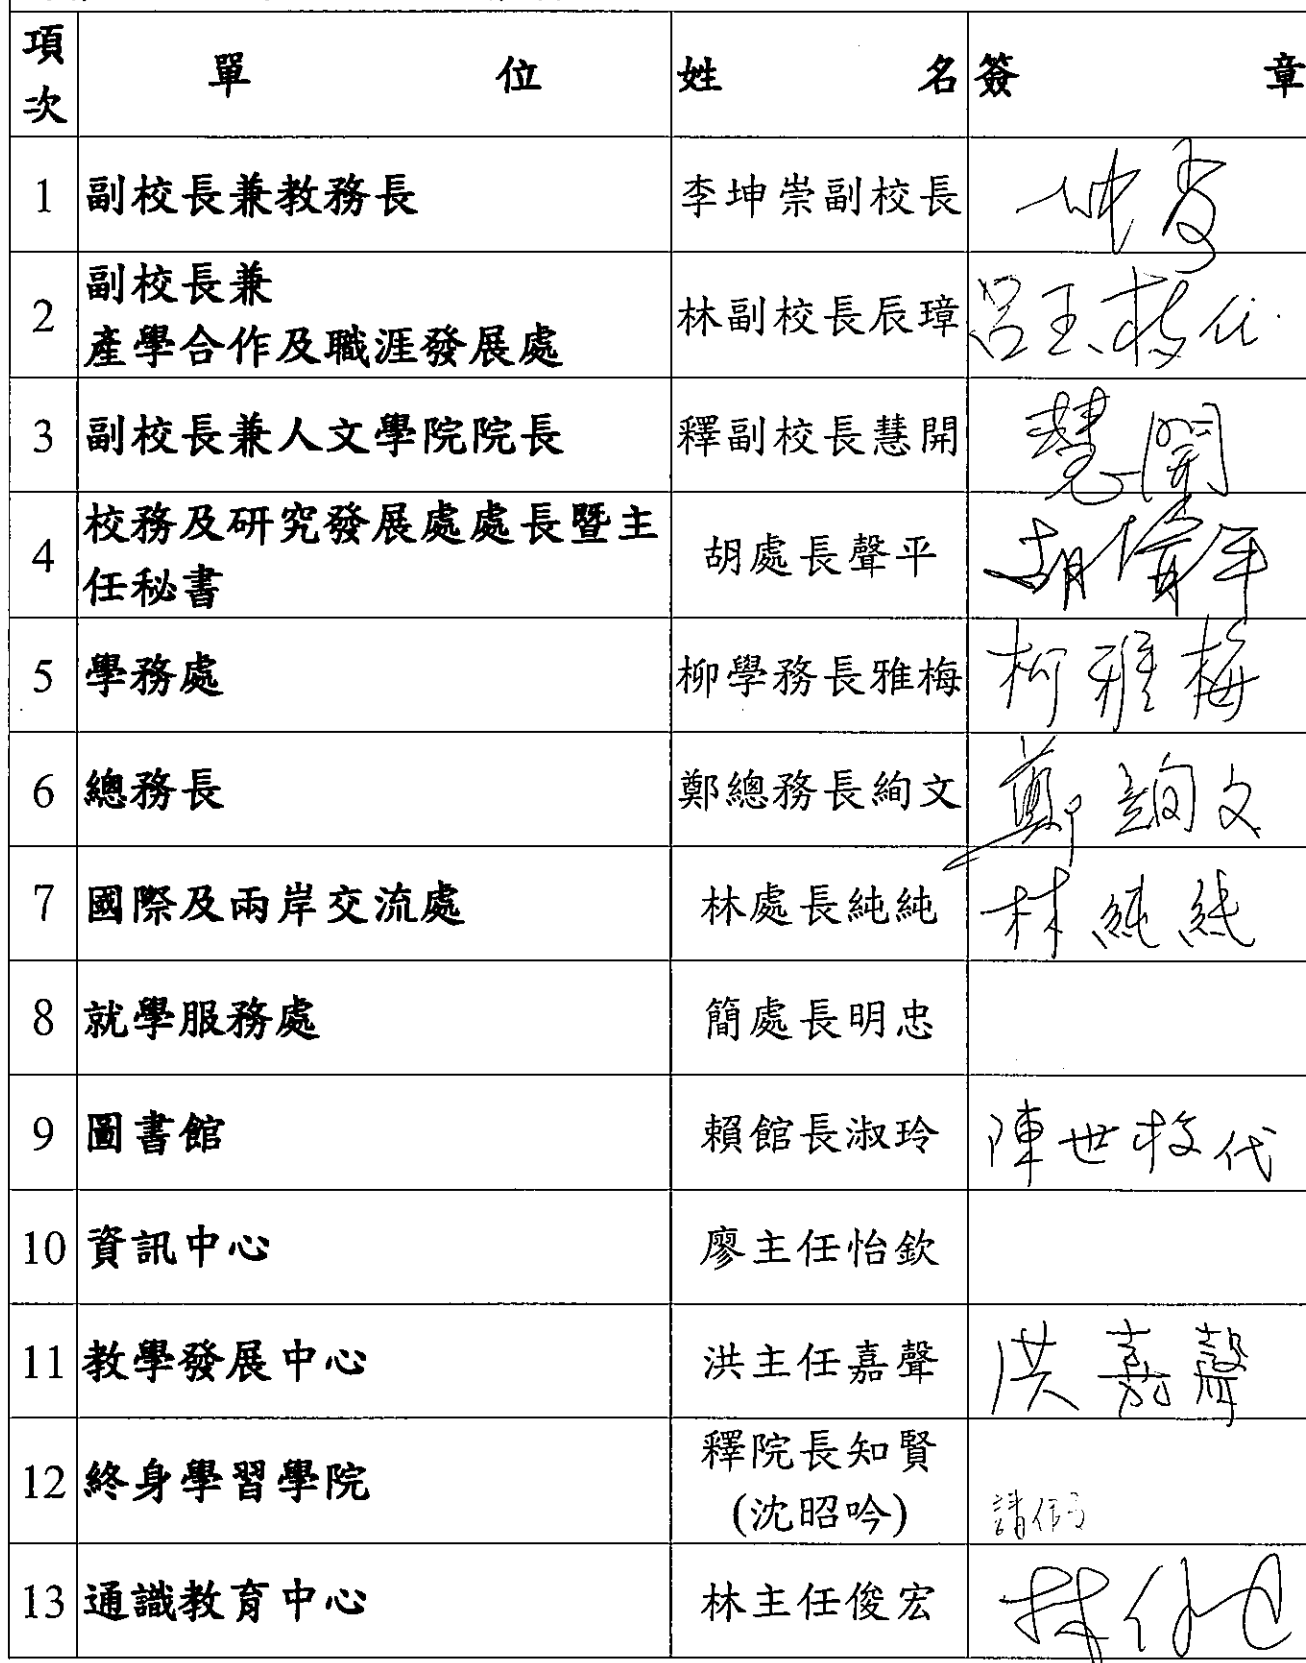 項次 單位 姓名 簽章
1 副校長兼教務長 李坤崇副校長
2 副校長兼
產學合作及職涯發展處 林副校長辰璋
3 副校長兼人文學院院長 釋副校長慧開 慧開
4 校務及研究發展處處長暨主
任秘書 胡處長聲平
5 學務處 柳學務長雅梅 柳雅梅
6 總務長 鄭總務長絢文 鄭絢文
7 國際及兩岸交流處 林處長純純 林純純
8 就學服務處 簡處長明忠
9 圖書館 賴館長淑玲 陳世枚代
10 資訊中心 廖主任怡欽
11 教學發展中心 洪主任嘉聲 洪嘉聲
12 終身學習學院 釋院長知賢
(沈昭吟) 請假
13 通識教育中心 林主任俊宏